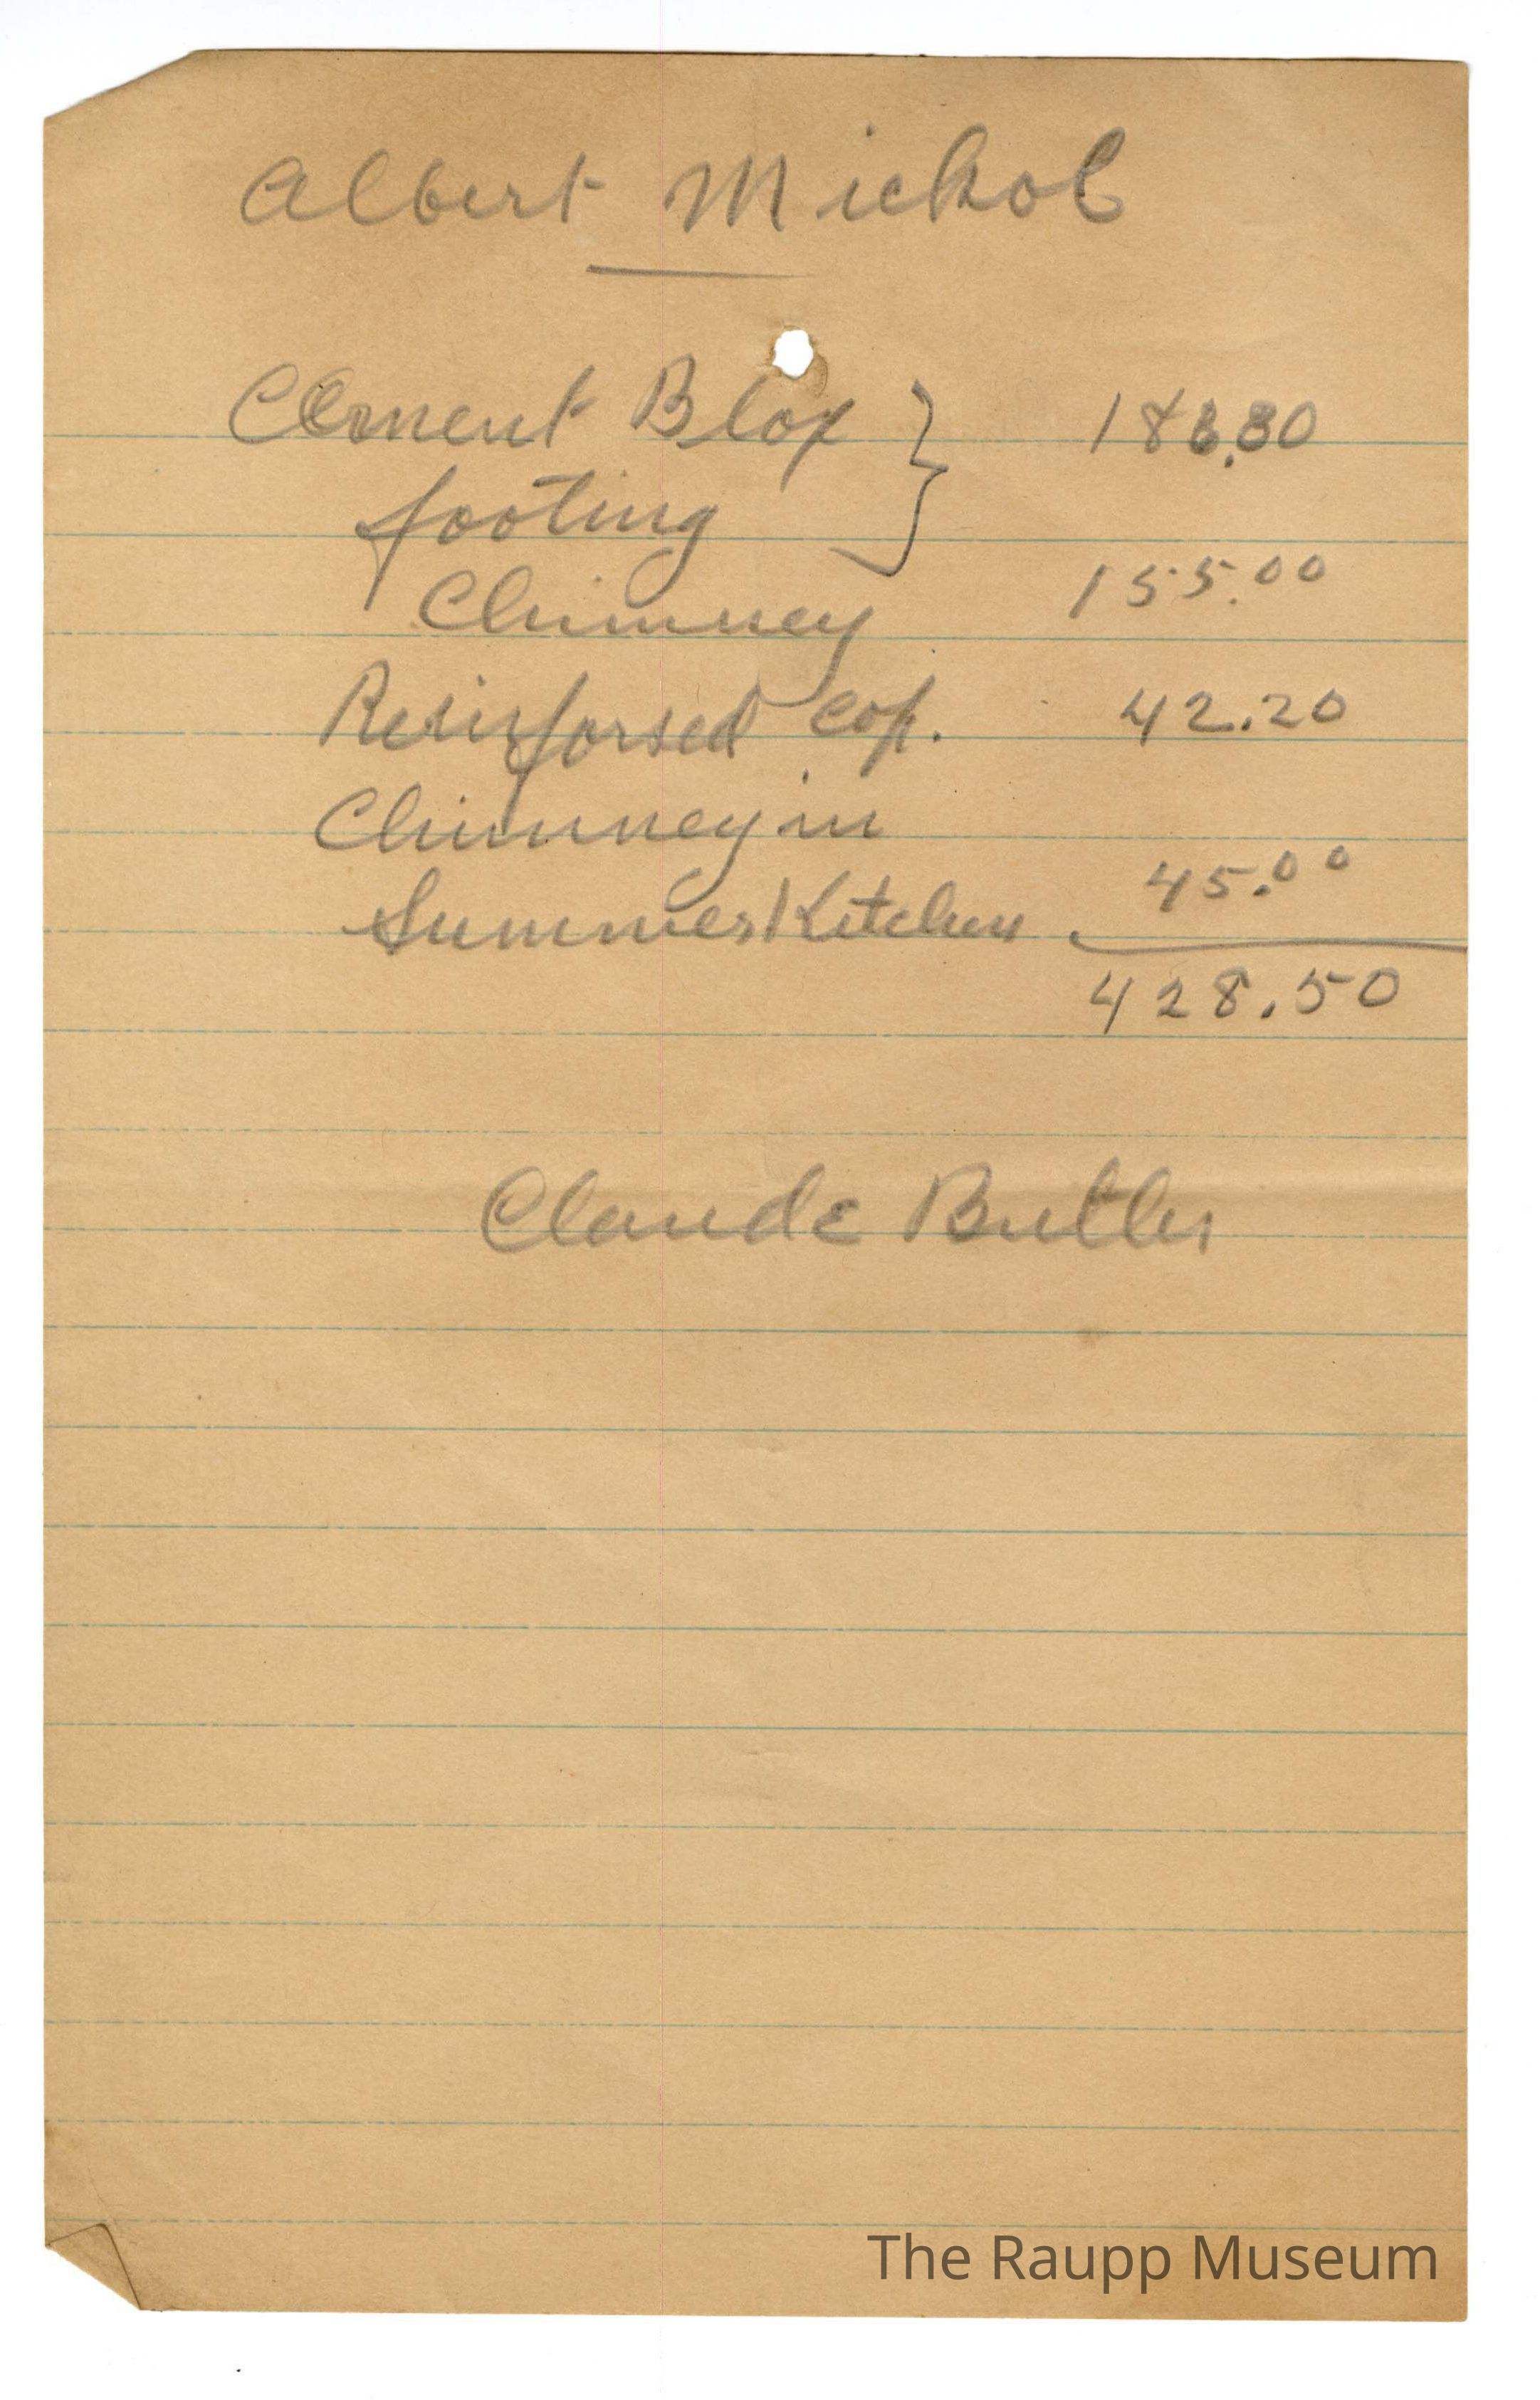 Albert Mickol
Cement Blox } 186.30
footing
Chimney 155.00
Reinforsed Cap. 42.20
Chimney in
Summer Kitchen 45.00
428.50
Claude Butler
The Raupp Museum